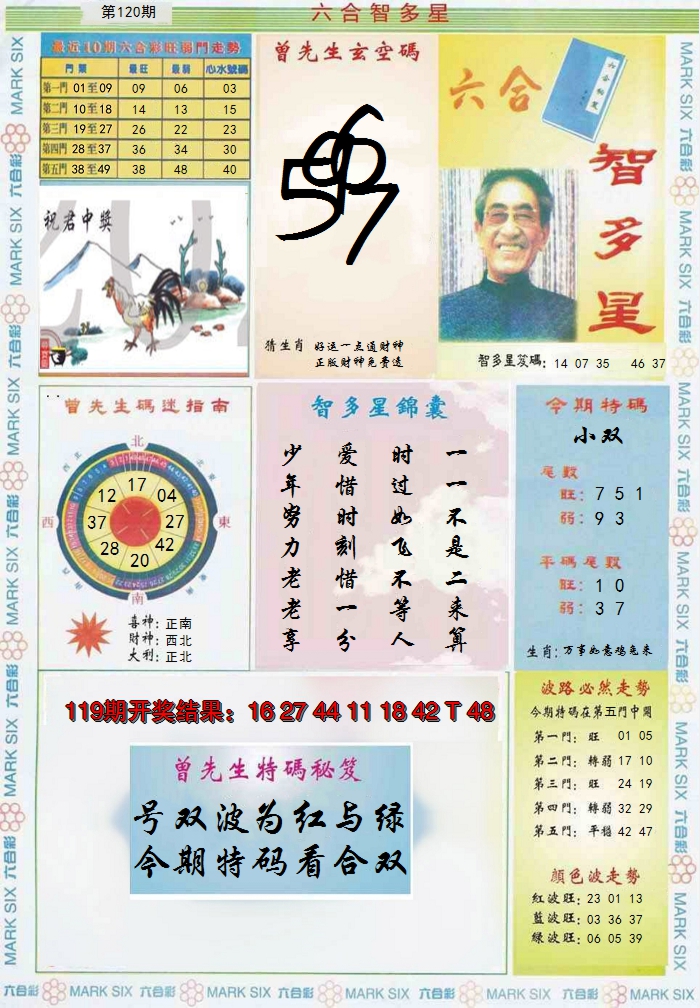 第120期
六合智多星
最近10期六合彩旺弱門走勢
門類 最旺 最弱 心水號碼
第一門 01至09 09 06 03
第二門 10至18 14 13 15
第三門 19至27 26 22 23
第四門 28至37 36 34 30
第五門 38至49 38 48 40
祝君中獎
曾先生玄空碼
猜生肖 好运一点通财神
正版财神免费送
六合
六合秘笈
智多星
智多星笈碼: 14 07 35 46 37
曾先生碼迷指南
北
西 東
南
12 17 04
37 27
28 42
20
喜神: 正南
財神: 西北
大利: 正北
智多星錦囊
一一不是二来算
时过如飞不等人
爱惜时刻惜一分
少年努力老老享
今期特碼
小双
尾數
旺: 7 5 1
弱: 9 3
平碼尾數
旺: 1 0
弱: 3 7
生肖: 万事如意鸡兔来
119期开奖结果：16 27 44 11 18 42 T 48
曾先生特碼秘笈
号双波为红与绿
今期特码看合双
波路必然走勢
今期特碼在第五門中開
第一門: 旺 01 05
第二門: 轉弱 17 10
第三門: 旺 24 19
第四門: 轉弱 32 29
第五門: 平穩 42 47
顏色波走勢
紅波旺: 23 01 13
藍波旺: 03 36 37
綠波旺: 06 05 39
MARK SIX 六合彩